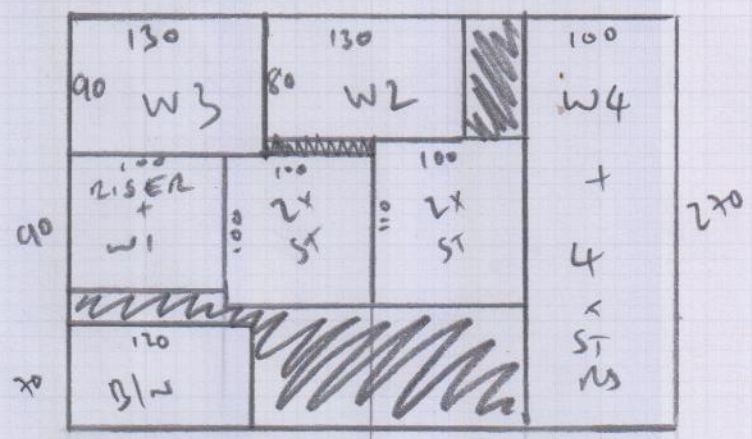 130
90
W3
130
80
W2
100
W4
+
4
x
ST
270
100
RISER
+
W1
90
100
2x
ST
100
100
2x
ST
110
120
B/N
70